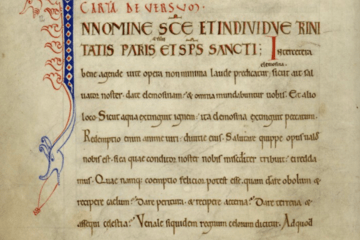 CARTA DE VERSVOS.
NNOMINE SCE ET INDIVIDVE TRINI
TATIS PATRIS ET SPS SANCTI: Inter cetera
elemosina
bene agende vite opera non minima laude predicatur, sicut ait sal
uator noster. date elemosinam & omnia mundabuntur uobis. Et alio
loco Sicut aqua extinguit ignem, ita elemosina extinguit peccatum.
Redemptio enim anime uiri, diuitie eius. Salubre quippe opus ualde
nobis est, si ea que conditor noster nobis tribuit, ei redda
mus. Quae namque comptio felicior potest esse, quam dare obolum &
recipere caelum? Dare peritura, & recipere aeterna? Dare terrena &
assequi celestia? Venale siquidem regnum celorum dicitur. Ad quod